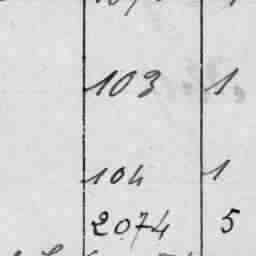 103 1
104 1
2074 5